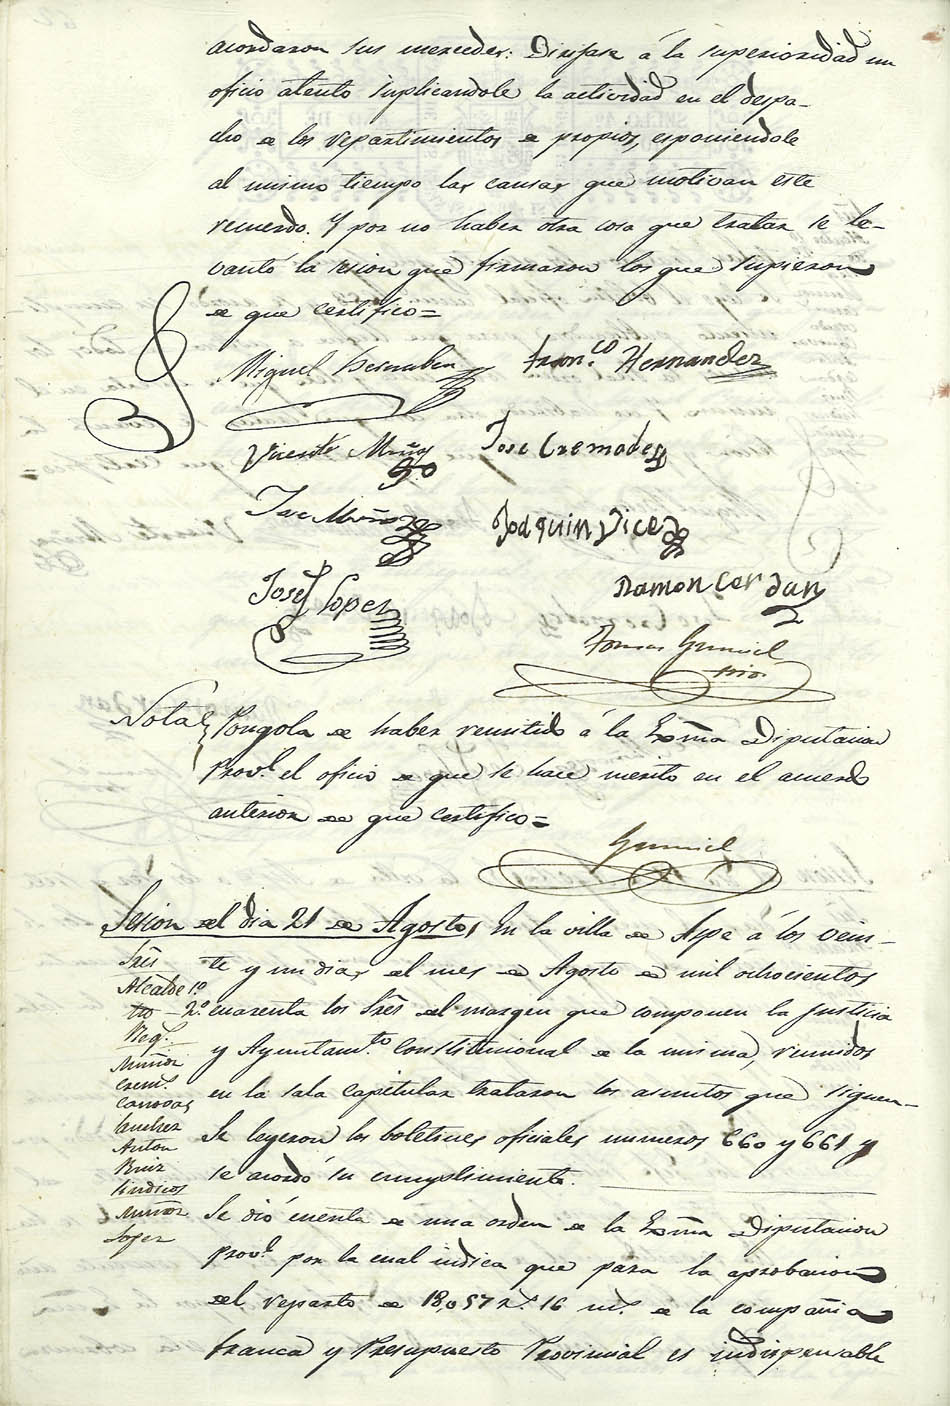 acordaron sus mercedes: Dirijase á la superioridad un
oficio atento suplicandole la actividad en el despa-
cho de los repartimientos de propios, esponiendole
al mismo tiempo las causas que motivan este
recuerdo. Y por no haber otra cosa que tratar se le-
vantó la sesion que firmaron los que supieron
de que certifico=
Miguel Franco Hernandez
Vicente Muñoz Jose Cremades
Jose Muñoz Joaquin Vicedo
José Lopez Ramon Cerdan
Tomas
srio.
Nota Pongola de haber remitido á la Exma Diputacion
Provl. el oficio de que se hace merito en el acuerdo
anterior de que certifico=
Sesion del dia 21 de Agosto, En la villa de Aspe á los vein-
te y un dias del mes de Agosto de mil ochocientos
cuarenta los Sres del margen que componen la Justicia
y Ayuntamto. Constitucional de la misma, reunidos
en la sala capitular trataron los asuntos que siguen-
Sres
Alcalde 1º
2º
Reg.
Muñoz
Crems.
Canovas
Sanchez
Anton
Ruiz
Sindicos
Muñoz
Lopez
Se leyeron los boletines oficiales numeros 660 y 661 y
se acordó su cumplimiento.
Se dió cuenta de una orden de la Exma Diputacion
Provl. por la cual indica que para la aprobacion
del reparto de 18,057 rs. 16 ms. de la compañia
franca y Presupuesto Provincial es indispensable